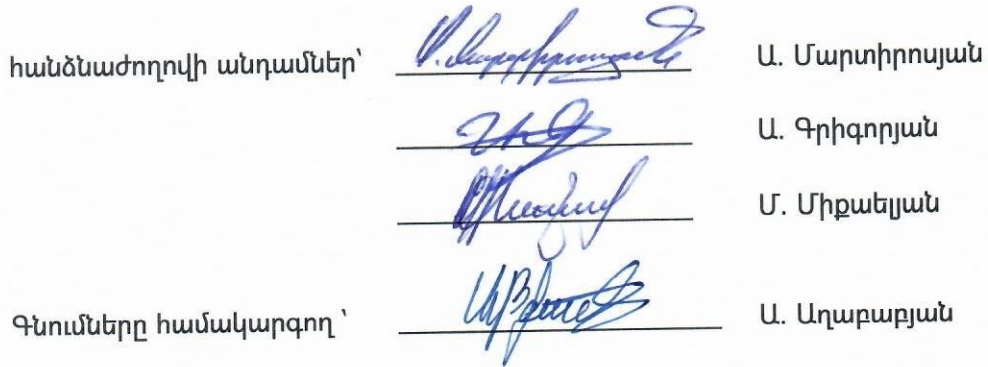 հանձնաժողովի անդամներ՝ Ա. Մարտիրոսյան
Ա. Գրիգորյան
Մ. Միքաելյան
Գնումները համակարգող ՝ Ա. Աղաբաբյան